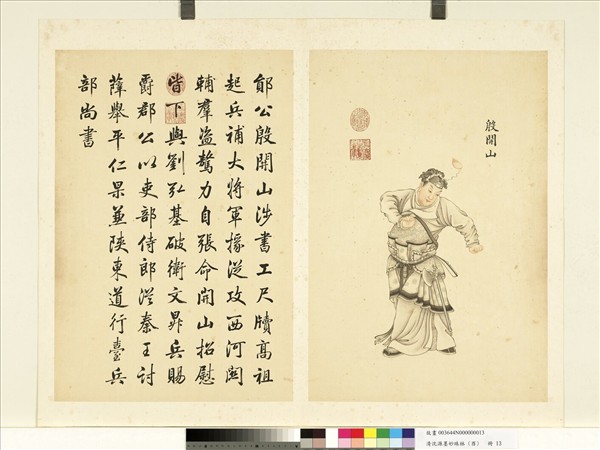 殷開山
鄖公殷開山涉書工尺牘高祖
起兵補大將軍掾從攻西河關
輔羣盜驁力自張命開山招慰
皆下與劉弘基破衛文昇兵賜
爵郡公以吏部侍郎從秦王討
薛舉平仁果兼陝東道行臺兵
部尚書
故畫 003644N000000013
清沈源墨妙珠林（酉） 冊 13